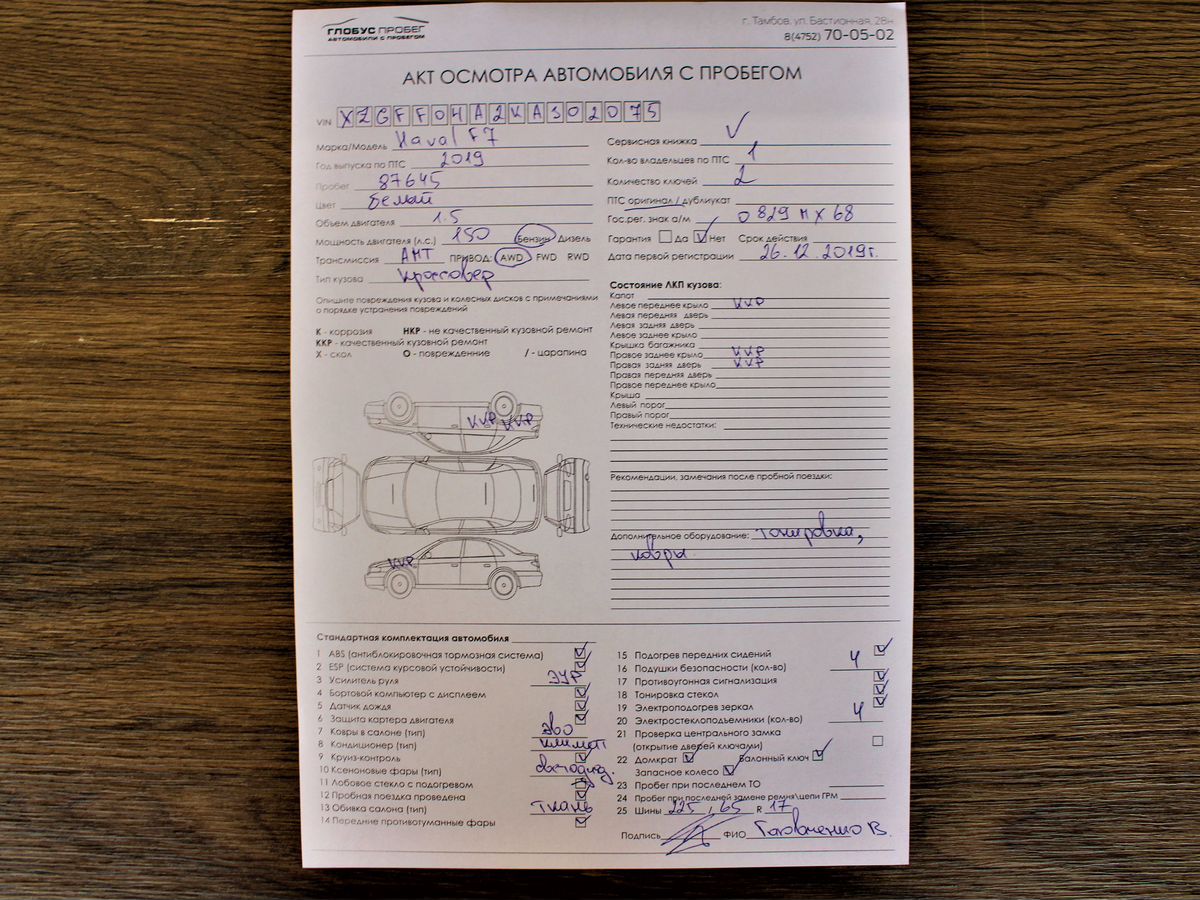 ГЛОБУС ПРОБЕГ
АВТОМОБИЛИ С ПРОБЕГОМ
г. Тамбов, ул. Бастионная, 28н
8(4752) 70-05-02
АКТ ОСМОТРА АВТОМОБИЛЯ С ПРОБЕГОМ
VIN XZGFF04A2KA302075
Марка/Модель Haval F7
Год выпуска по ПТС 2019
Пробег 87645
Цвет белый
Объем двигателя 1.5
Мощность двигателя (л.с.) 150 Бензин Дизель
Трансмиссия АМТ ПРИВОД: AWD FWD RWD
Тип кузова Кроссовер
Опишите повреждения кузова и колесных дисков с примечаниями
о порядке устранения повреждений
К - коррозия НКР - не качественный кузовной ремонт
ККР - качественный кузовной ремонт
Х - скол О - повреждение / - царапина
ККР ККР
ККР
Сервисная книжка ✓
Кол-во владельцев по ПТС 1
Количество ключей 2
ПТС оригинал / дубликат
Гос.рег. знак а/м О 829 МХ 68
Гарантия Да ✓ Нет Срок действия
Дата первой регистрации 26.12.2019г.
Состояние ЛКП кузова:
Капот
Левое переднее крыло ККР
Левая передняя дверь
Левая задняя дверь
Левое заднее крыло
Крышка багажника
Правое заднее крыло ККР
Правая задняя дверь ККР
Правая передняя дверь
Правое переднее крыло
Крыша
Левый порог
Правый порог
Технические недостатки:
Рекомендации, замечания после пробной поездки:
Дополнительное оборудование: тонировка,
ковры.
Стандартная комплектация автомобиля
1 ABS (антиблокировочная тормозная система) ✓
2 ESP (система курсовой устойчивости) ✓
3 Усилитель руля ЭУР
4 Бортовой компьютер с дисплеем ✓
5 Датчик дождя ✓
6 Защита картера двигателя ✓
7 Ковры в салоне (тип) эво
8 Кондиционер (тип) климат
9 Круиз-контроль ✓
10 Ксеноновые фары (тип) светодиод.
11 Лобовое стекло с подогревом ✓
12 Пробная поездка проведена ✓
13 Обивка салона (тип) ткань
14 Передние противотуманные фары ✓
15 Подогрев передних сидений ✓
16 Подушки безопасности (кол-во) 4
17 Противоугонная сигнализация ✓
18 Тонировка стекол ✓
19 Электроподогрев зеркал ✓
20 Электростеклоподъемники (кол-во) 4
21 Проверка центрального замка
(открытие дверей ключами)
22 Домкрат ✓ Балонный ключ ✓
Запасное колесо ✓
23 Пробег при последнем ТО
24 Пробег при последней замене ремня\цепи ГРМ
25 Шины 225 , 65 R 17
Подпись ФИО Головченко В.